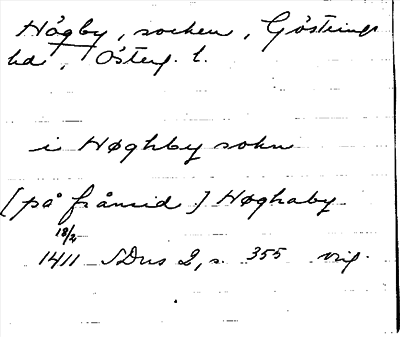 Högby, socken, Göstrings
hd, Österg. l.
i Høghby sokn
[på frånsid] Høghaby
18/2
1411 SDns 2, s. 355 orig.